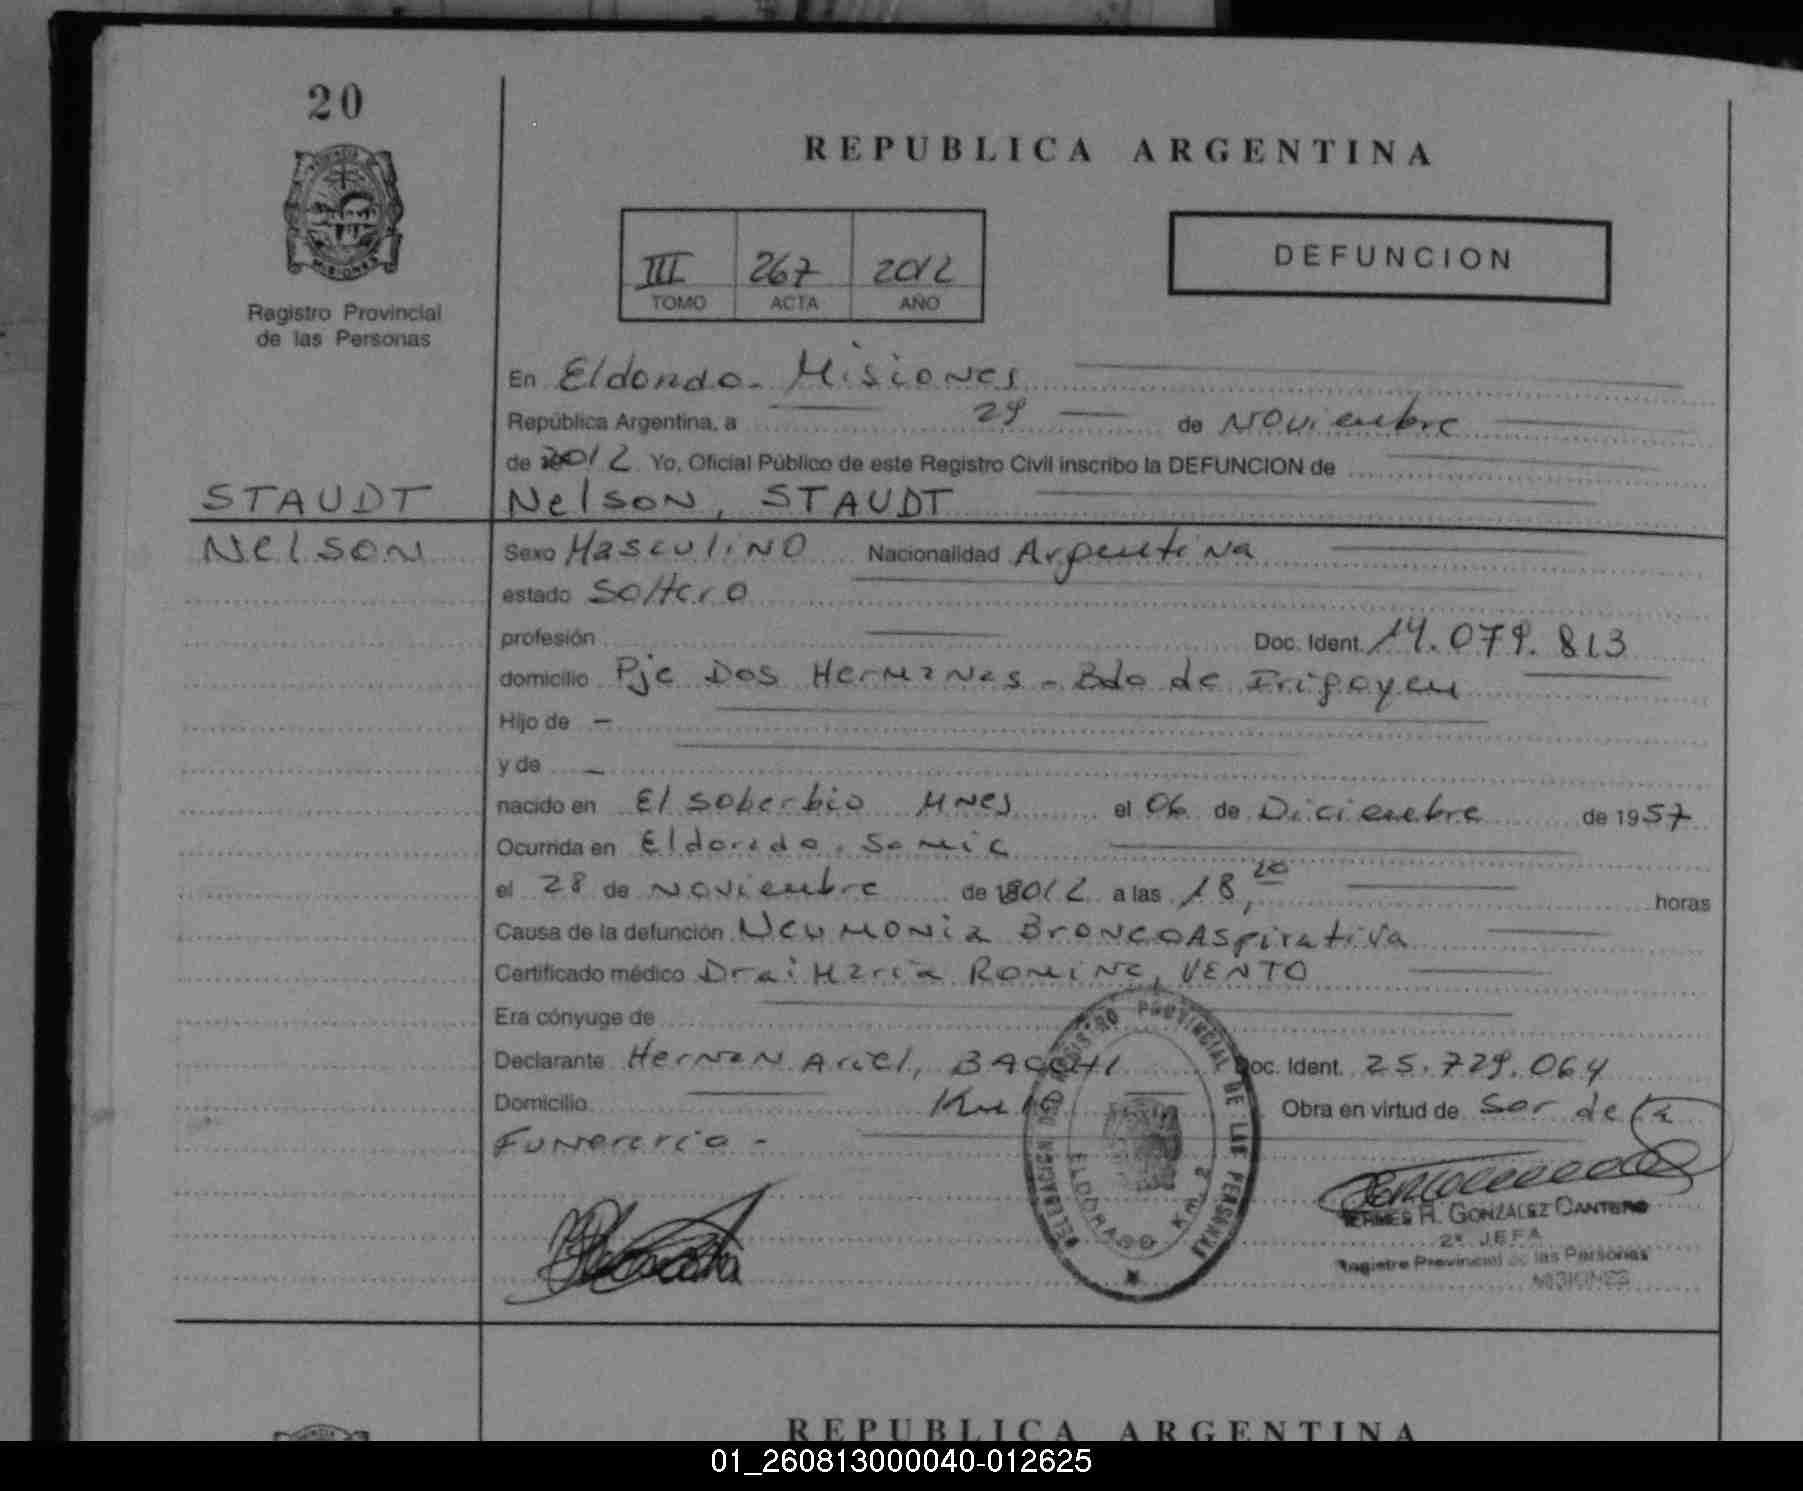 20
REPUBLICA ARGENTINA
III 267 2012
TOMO ACTA AÑO
DEFUNCION
Registro Provincial
de las Personas
En Eldorado - Misiones
República Argentina, a 29 de Noviembre
de 2012 Yo, Oficial Público de este Registro Civil inscribo la DEFUNCION de
STAUDT Nelson, STAUDT
Nelson Sexo Masculino Nacionalidad Argentina
estado Soltero
profesión Doc. Ident. 14.079.813
domicilio Pje Dos Hermanas - Bdo de Irigoyen
Hijo de —
y de —
nacido en El soberbio Mnes el 06 de Diciembre de 1957
Ocurrida en Eldorado, Samic
el 28 de Noviembre de 2012 a las 18,20 horas
Causa de la defunción Neumonia BroncoAspirativa
Certificado médico Dra: Maria Romina, VENTO
Era cónyuge de
Declarante Hernan Ariel, BACCHI Doc. Ident. 25.729.064
Domicilio Km 10 Obra en virtud de Ser de la
Funeraria -
DELEGACION DEL REGISTRO PROVINCIAL DE LAS PERSONAS
ELDORADO KM. 2
R. GONZALEZ CANTERO
2ª JEFA
Registro Provincial de las Personas
MISIONES
REPUBLICA ARGENTINA
01_260813000040-012625